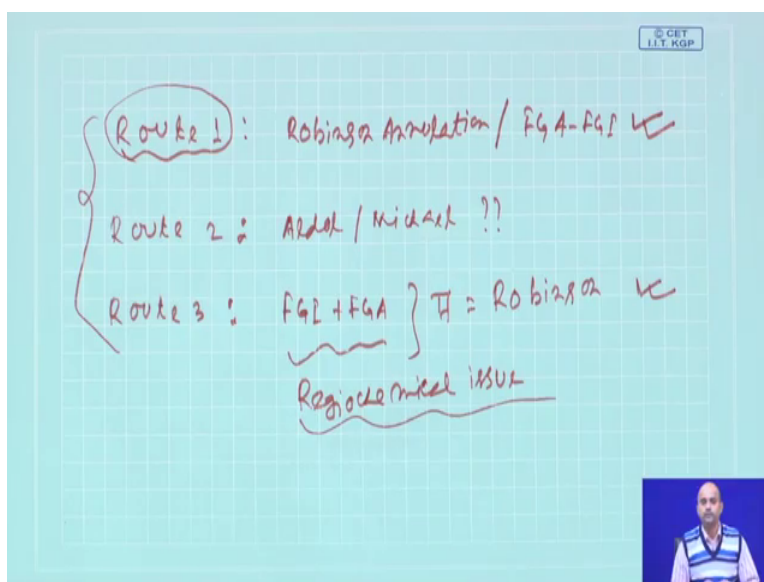 © CET
I.I.T. KGP
Route 1 : Robinson Annulation / FGA-FGI
Route 2 : Aldol / Michael ??
Route 3 : FGI + FGA } II = Robinson
Regiochemical issue